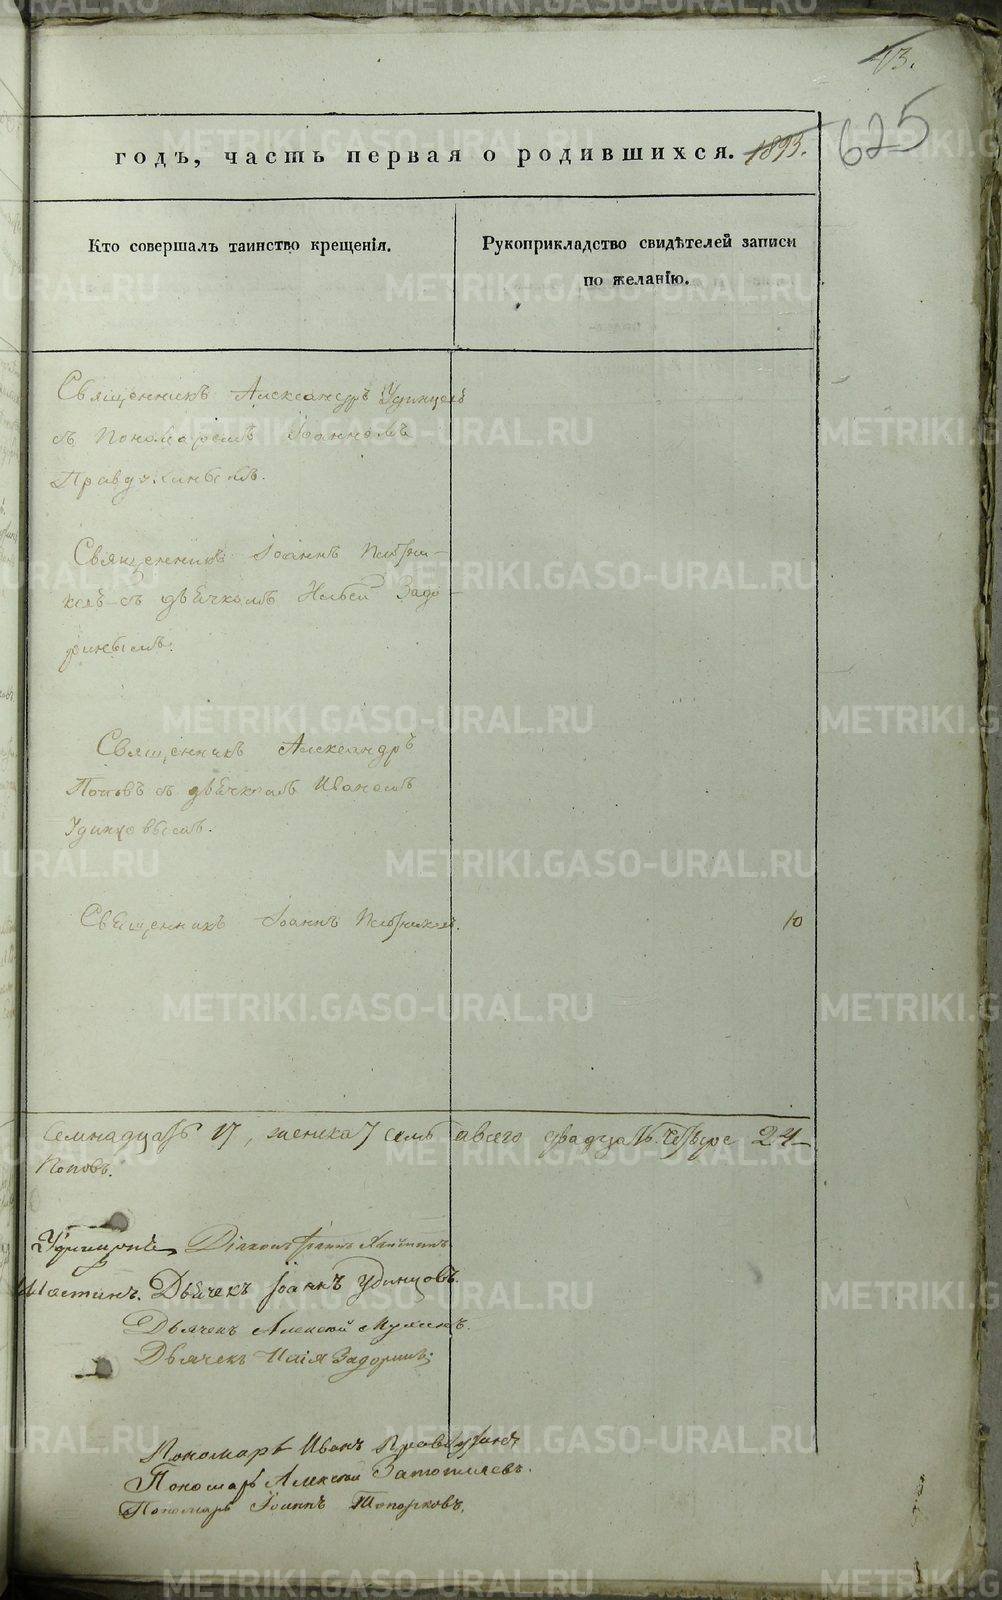 13.
625
годъ, часть первая о родившихся. 1893.
Кто совершалъ таинство крещенія.
Рукоприкладство свидѣтелей записи
по желанію.
Священникъ Александръ Удинцевъ
съ Пономаремъ Іоанномъ
Правдухинымъ.
Священникъ Іоаннъ
съ дьячкомъ Ильей Задо-
ринымъ.
Священникъ Александръ
Поповъ съ дьячкомъ Иваномъ
Удинцовымъ.
Священникъ Іоаннъ
10
Семнадцать 17, женска 7 семь авсего двадцать четыре 24
Поповъ.
Діаконъ Іоаннъ
Дьячекъ Іоаннъ Удинцовъ.
Дьячекъ Алексѣй
Дьячекъ Илія Задоринъ
Пономарь Иванъ Правдухинъ
Пономарь Алексѣй
Пономарь Іоаннъ Топорковъ.
METRIKI.GASO-URAL.RU